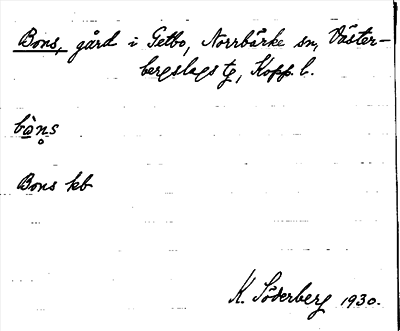 Bons, gård i Getbo, Norrbärke sn, Väster-
bergslags tg, Kopp. l.
bȧ̀n̥s
Bons kb
K. Söderberg 1930.